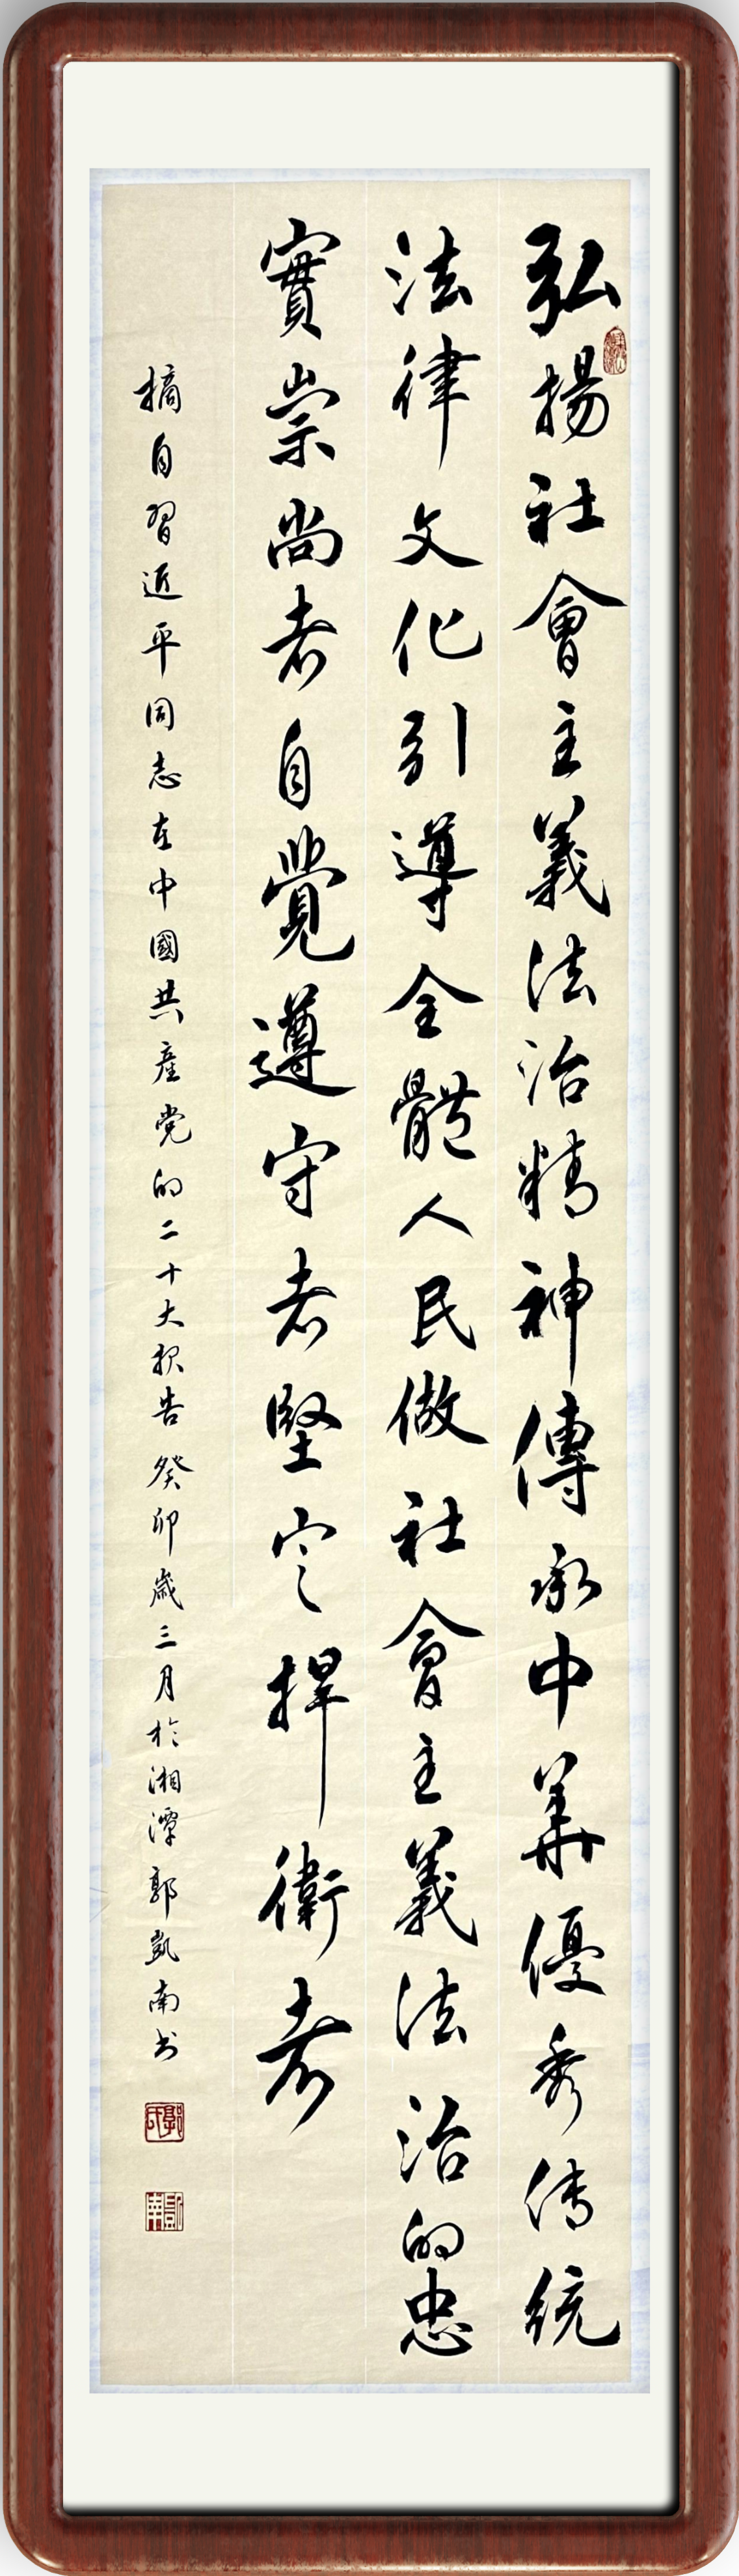 弘揚社會主義法治精神傳承中華優秀传統
法律文化引導全體人民做社會主義法治的忠
實崇尚者自覺遵守者堅定捍衛者
摘自習近平同志在中國共產党的二十大报告癸卯歲三月於湘潭郭凱南书